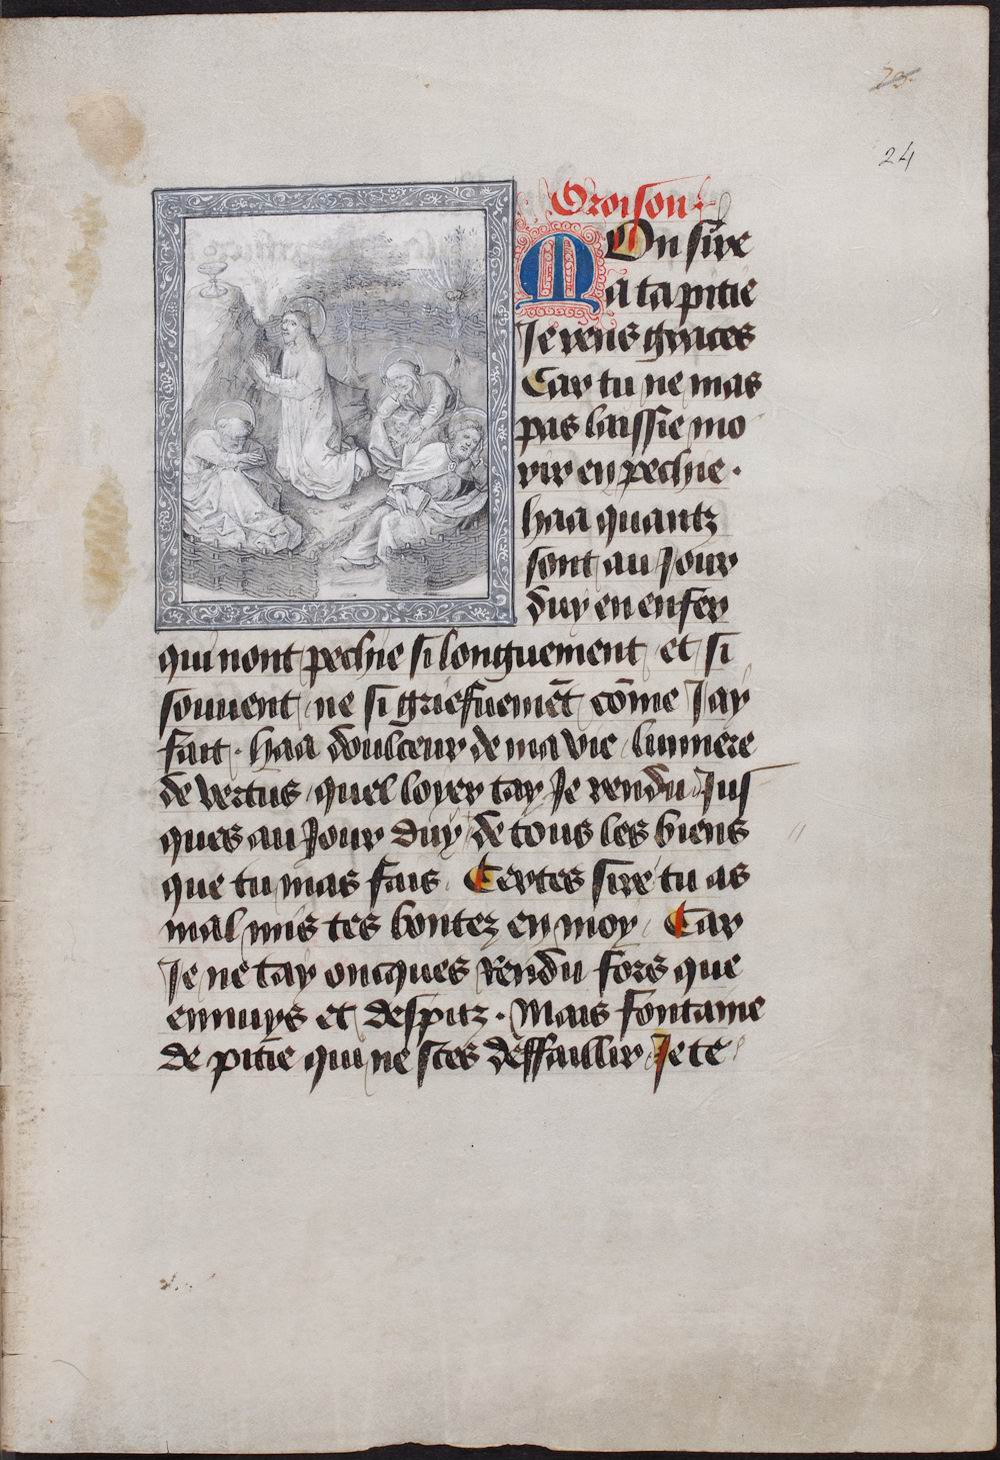 24
Oroison
MOn sire
a ta pitie
Je rens graces
Car tu ne mas
pas laissie mo
rir en pechie .
haa quantz
sont au Jour
duy en enfer
qui nont pechie si longuement et si
souuent ne si griefuemēt cōme Jay
fait . haa doulceur de ma vie lumiere
de vertus quel loyer tay Je rendu Jus
ques au Jour duy de tous les biens
que tu mas fais . Certes sire tu as
mal mis tes bontez en moy . Car
Je ne tay oncques Rendu fors que
ennuys et despitz . Mais fontaine
de pitie qui ne sces deffaillir Je te